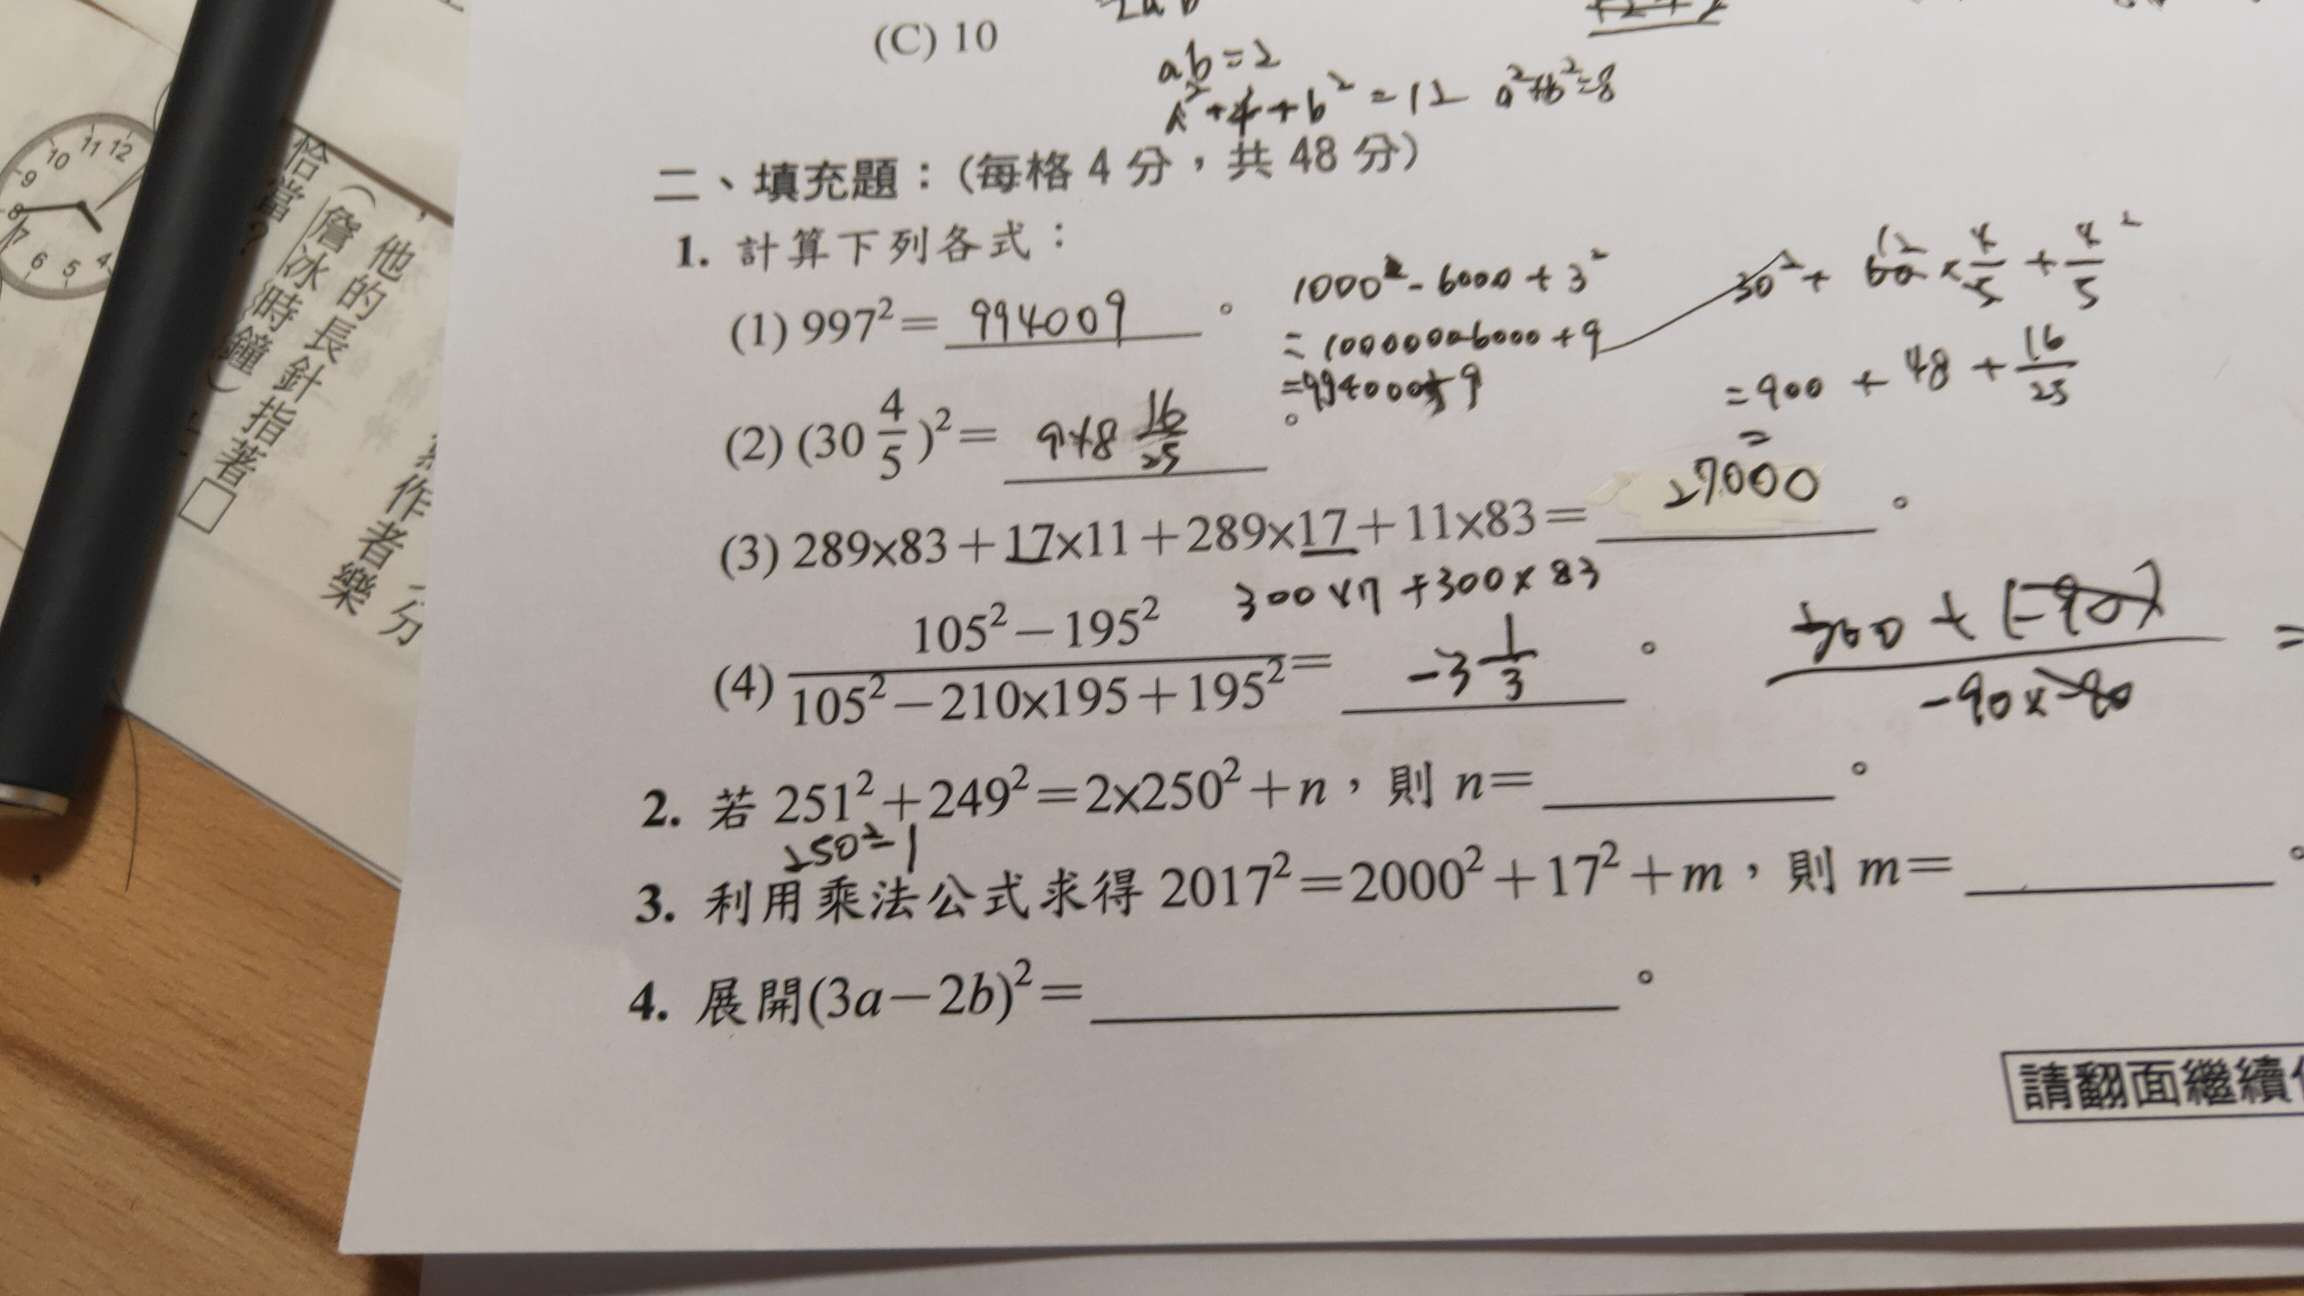 (C) 10
2ab
ab=2
a²+4+b²=12 a²+b²=8
二、填充題：(每格 4 分，共 48 分)
1. 計算下列各式：
(1) 997²= 994009 。
1000²-6000+3²
=1000000-6000+9
=994000+9
(2) (30 4/5)²= 948 16/25 。
30²+ 60 12 ×4/5+4/5²
=900+48+16/25
=
(3) 289×83+17×11+289×17+11×83= 27000 。
300×17+300×83
(4) 105²-195² / 105²-210×195+195² = -3 1/3 。
300+(-90) / -90×-90 =
2. 若 251²+249²=2×250²+n，則 n= 。
250²-1
3. 利用乘法公式求得 2017²=2000²+17²+m，則 m= 。
4. 展開(3a-2b)²= 。
請翻面繼續
恰當？
(詹冰時鐘)
他的長針指著□
分
作者樂
10 11 12
9
8
7
6 5 4